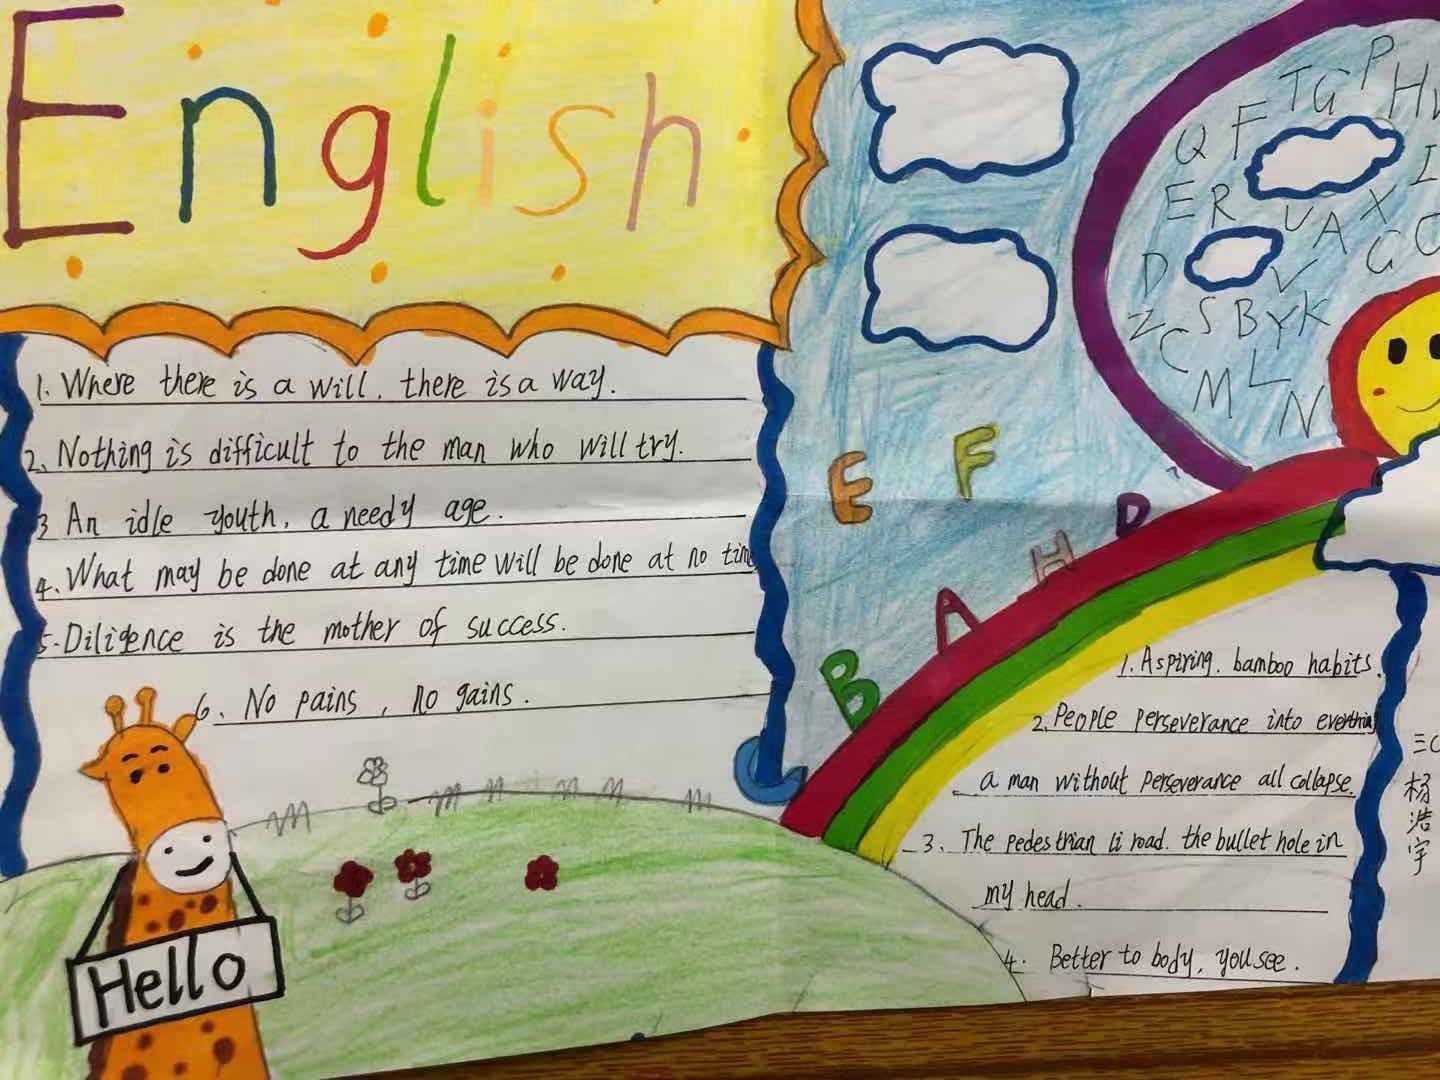 English
1. Where there is a will, there is a way.
2. Nothing is difficult to the man who will try.
3 An idle youth, a needy age.
4. What may be done at any time will be done at no time
5. Diligence is the mother of success.
6. No pains, no gains.
Hello
P
T G H
Q F
I
E R U A X
D V G C
Z C S B Y K
M L N
E F
D
H
A
B
1. Aspiring. bamboo habits.
2. People perseverance into everthing
a man without perseverance all collapse.
3. The pedestrian li road. the bullet hole in
my head.
4. Better to body, you see.
三
杨
浩
宇